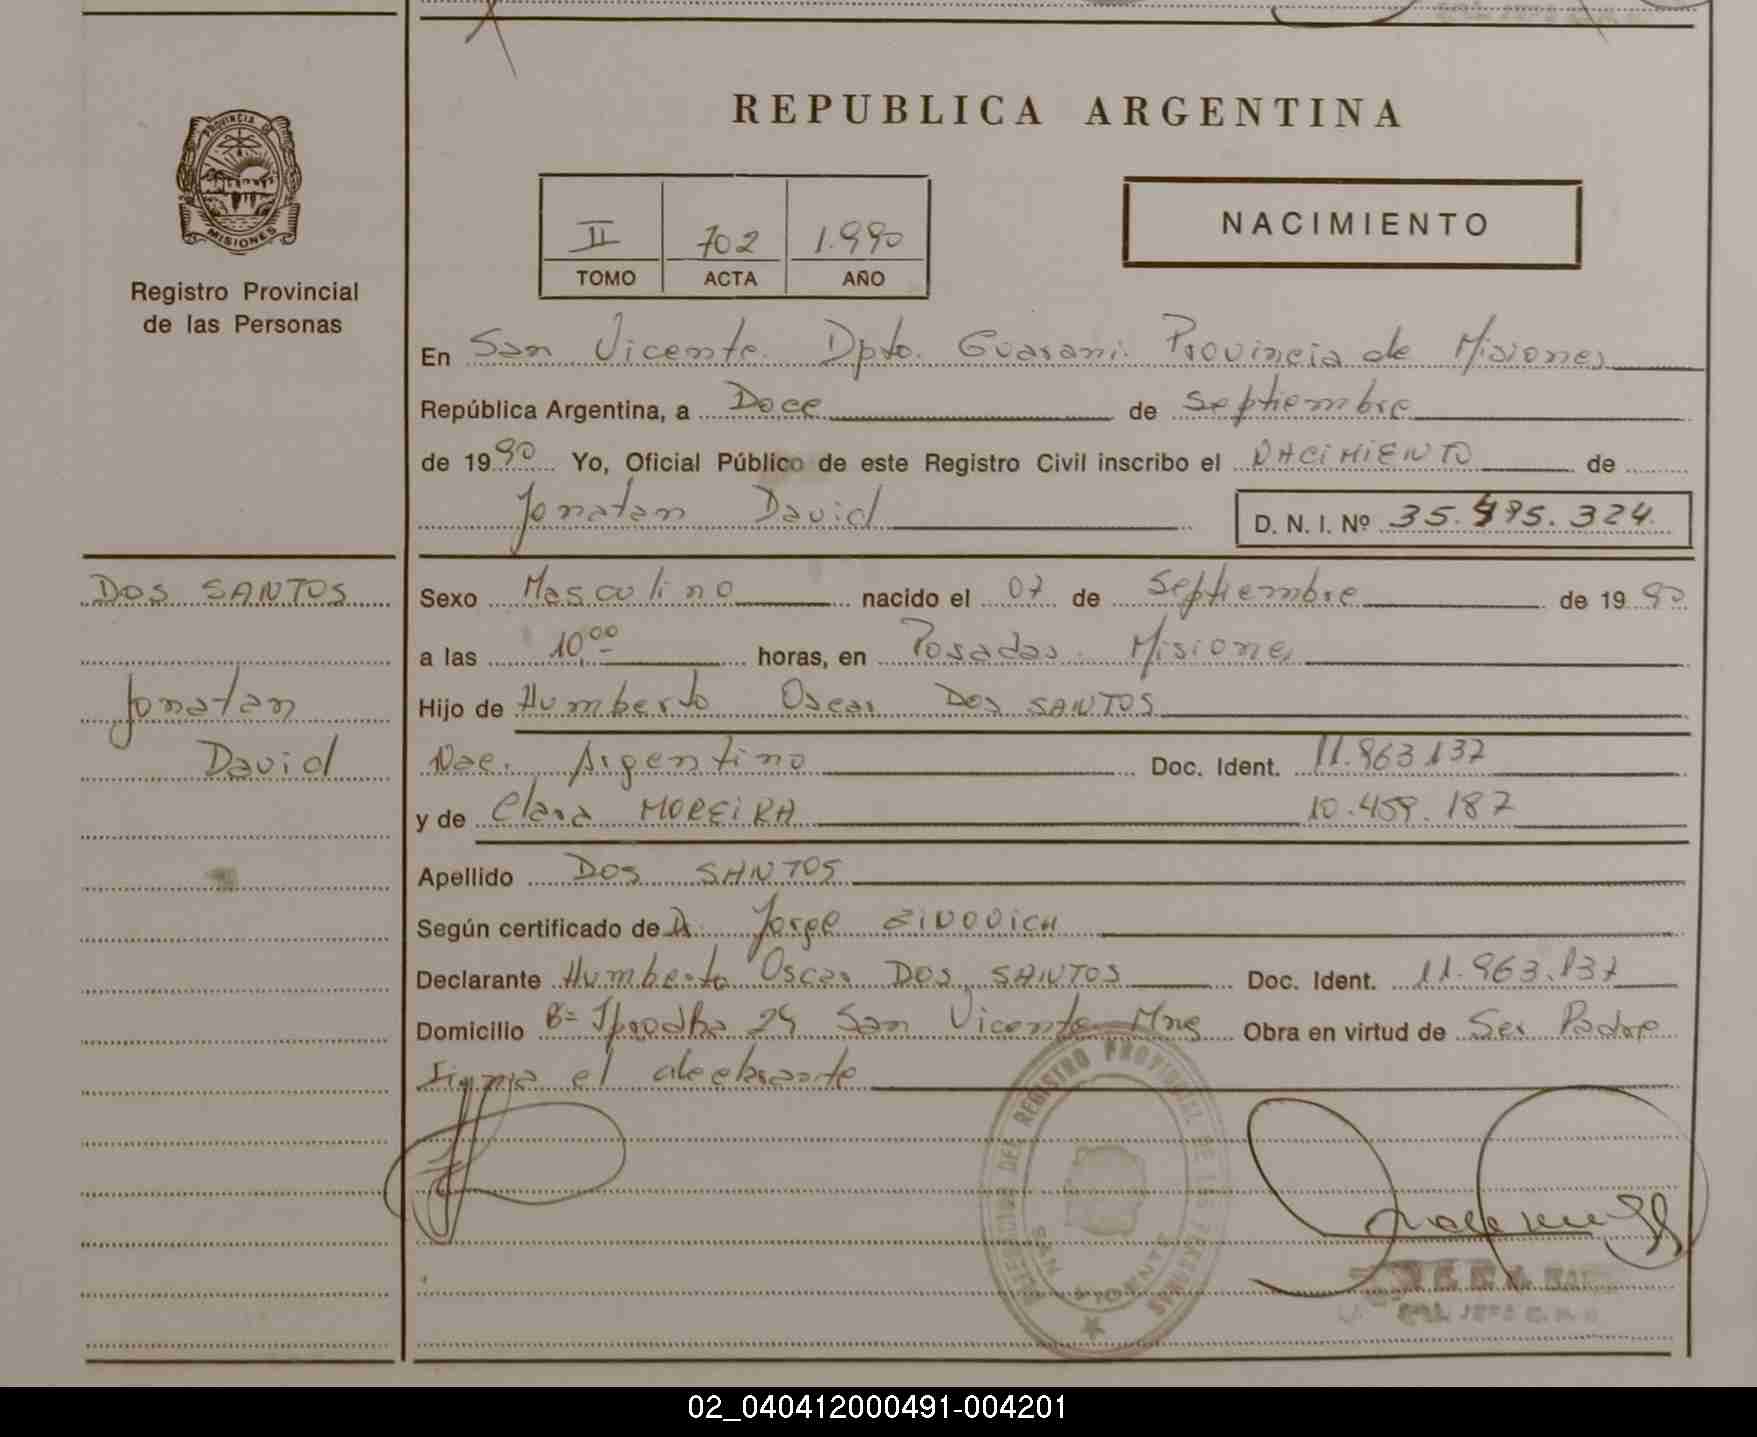 REPUBLICA ARGENTINA
PROVINCIA DE
MISIONES
Registro Provincial
de las Personas
II 702 1.990
TOMO ACTA AÑO
NACIMIENTO
En San Vicente Dpto. Guarani Provincia de Misiones
República Argentina, a Doce de Septiembre
de 1990 Yo, Oficial Público de este Registro Civil inscribo el NACIMIENTO de
Jonatan David
D. N. I. Nº 35.495.324
DOS SANTOS
Jonatan
David
Sexo Masculino nacido el 07 de Septiembre de 1990
a las 10,00 horas, en Posadas Misiones
Hijo de Humberto Oscar Dos SANTOS
Nac. Argentino Doc. Ident. 11.963.137
y de Clara MOREiRA 10.459.187
Apellido Dos SANTOS
Según certificado de Jorge
Declarante Humberto Oscar Dos SANTOS Doc. Ident. 11.963.137
Domicilio Bº 24 San Vicente Mnes Obra en virtud de Ser Padre
Firma el declarante
DELEGACION DEL REGISTRO PROVINCIAL DE LAS PERSONAS
SAN VICENTE
02_040412000491-004201